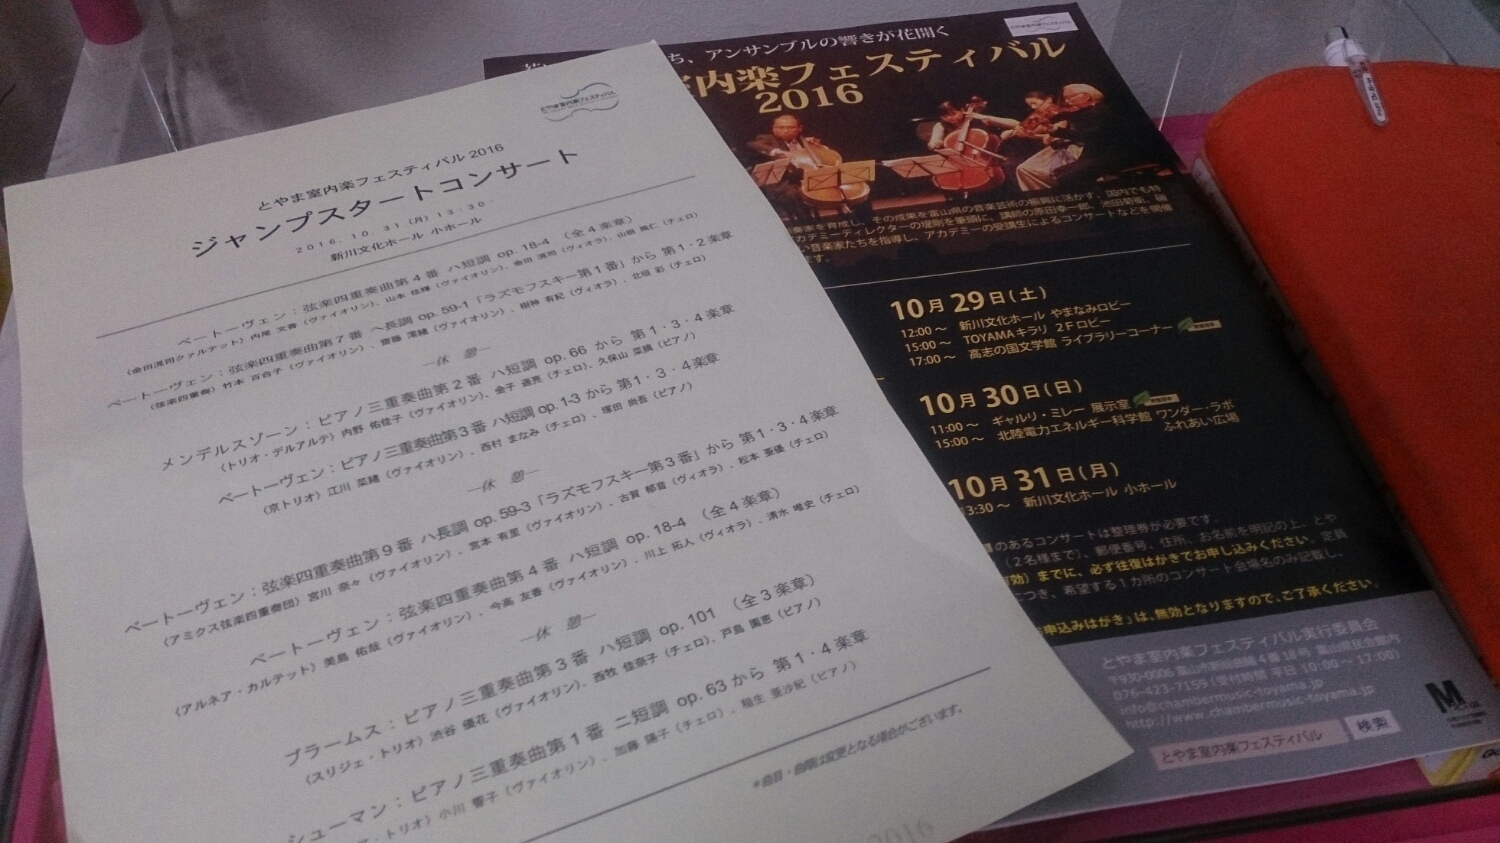 とやま室内楽フェスティバル
とやま室内楽フェスティバル 2016
ジャンプスタートコンサート
2016.10.31 (月) 13:30-
新川文化ホール 小ホール
ベートーヴェン：弦楽四重奏曲第4番 ハ短調 op. 18-4 （全4楽章）
内尾 文香（ヴァイオリン）、山本 佳輝（ヴァイオリン）、（ヴィオラ）、（チェロ）
ベートーヴェン：弦楽四重奏曲第7番 ヘ長調 op. 59-1「ラズモフスキー第1番」から 第1・2楽章
（弦楽四重奏）竹本 百合子（ヴァイオリン）、齋藤 澪緒（ヴァイオリン）、樹神 有紀（ヴィオラ）、北垣 彩（チェロ）
―休 憩―
メンデルスゾーン：ピアノ三重奏曲第2番 ハ短調 op. 66 から 第1・3・4楽章
（トリオ・デルアルテ）内野 佑佳子（ヴァイオリン）、金子 遥亮（チェロ）、久保山 菜摘（ピアノ）
ベートーヴェン：ピアノ三重奏曲第3番 ハ短調 op. 1-3 から 第1・3・4楽章
（京トリオ）江川 菜緒（ヴァイオリン）、西村 まなみ（チェロ）、塚田 尚吾（ピアノ）
―休 憩―
ベートーヴェン：弦楽四重奏曲第9番 ハ長調 op. 59-3「ラズモフスキー第3番」から 第1・3・4楽章
（アミクス弦楽四重奏団）宮川 奈々（ヴァイオリン）、宮本 有里（ヴァイオリン）、古賀 郁音（ヴィオラ）、松本 亜優（チェロ）
ベートーヴェン：弦楽四重奏曲第4番 ハ短調 op. 18-4 （全4楽章）
（アルネア・カルテット）美島 佑哉（ヴァイオリン）、今高 友香（ヴァイオリン）、川上 拓人（ヴィオラ）、清水 唯史（チェロ）
―休 憩―
ブラームス：ピアノ三重奏曲第3番 ハ短調 op. 101 （全3楽章）
（スリジェ・トリオ）渋谷 優花（ヴァイオリン）、西牧 佳奈子（チェロ）、戸島 園恵（ピアノ）
シューマン：ピアノ三重奏曲第1番 ニ短調 op. 63 から 第1・4楽章
・トリオ）小川 響子（ヴァイオリン）、加藤 陽子（チェロ）、稲生 亜沙紀（ピアノ）
*曲目・曲順は変更となる場合がございます。
2016
ち、アンサンブルの響きが花開く
とやま室内楽フェスティバル
室内楽フェスティバル
2016
奏家を育成し、その成果を富山県の音楽芸術の振興に活かす、国内でも特
カデミーディレクターの堤剛を筆頭に、講師の原田幸一郎、池田菊衛、磯
い音楽家たちを指導し、アカデミーの受講生によるコンサートなどを開催
ます。
10月29日(土)
12:00～ 新川文化ホール やまなみロビー
15:00～ TOYAMAキラリ 2Fロビー
17:00～ 高志の国文学館 ライブラリーコーナー
10月30日(日)
11:00～ ギャルリ・ミレー 展示室
15:00～ 北陸電力エネルギー科学館 ワンダー・ラボ
ふれあい広場
10月31日(月)
13:30～ 新川文化ホール 小ホール
のあるコンサートは整理券が必要です。
（2名様まで）、郵便番号、住所、お名前を明記の上、とや
効）までに、必ず往復はがきでお申し込みください。定員
につき、希望する1カ所のコンサート会場名のみ記載し、
申込みはがき」は、無効となりますので、ご了承ください。
とやま室内楽フェスティバル実行委員会
〒930-0006 富山市新総曲輪4番18号 富山県民会館内
076-423-7159 (受付時間 平日 10:00～17:00)
info@chambermusic-toyama.jp
http://www.chambermusic-toyama.jp
とやま室内楽フェスティバル 検索